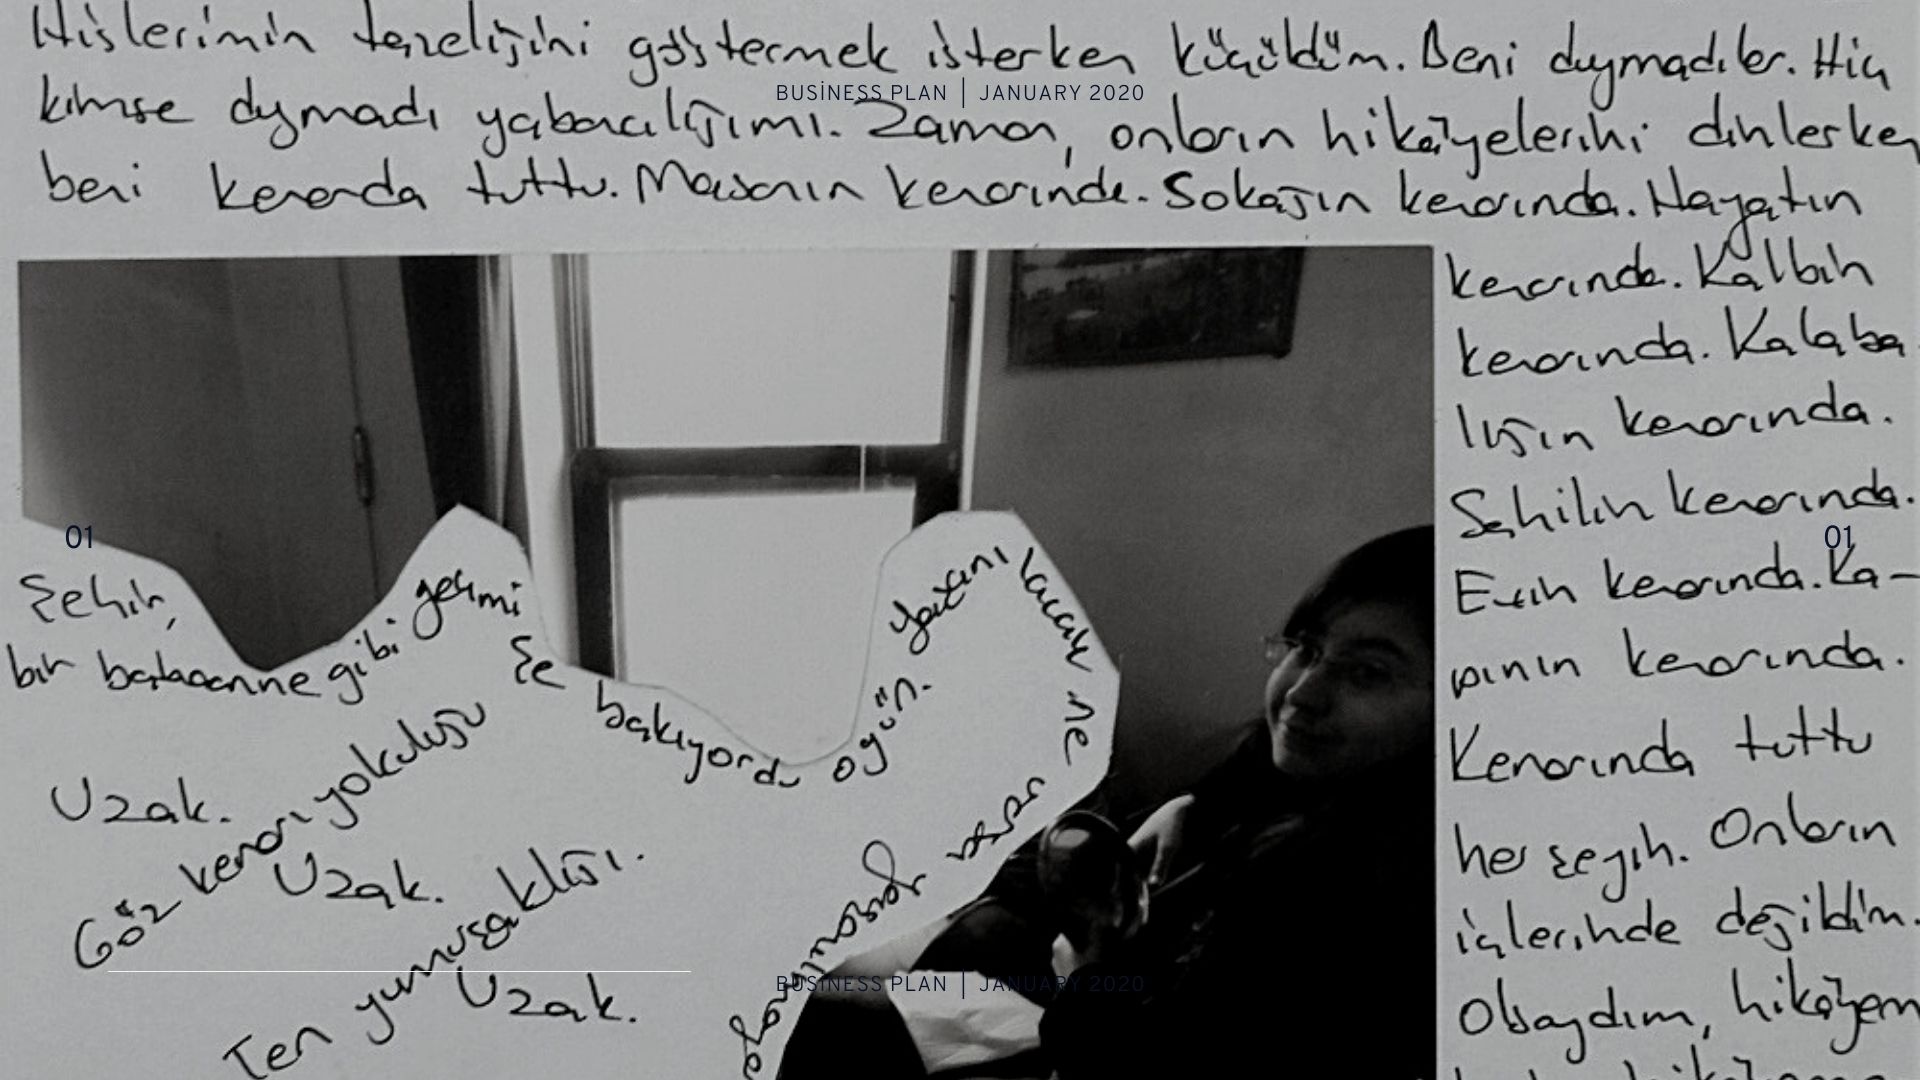 Hislerimin tazeliğini göstermek isterken küçüldüm. Beni duymadılar. Hiç
kimse duymadı yabancılığımı. Zaman, onların hikâyelerini dinlerken
beni kenarda tuttu. Masanın kenarında. Sokağın kenarında. Hayatın
kenarında. Kalbin
kenarında. Kalaba
lığın kenarında.
Sahilin kenarında.
Evin kenarında. Ka-
pının kenarında.
Kenarında tuttu
her şeyin. Onların
içlerinde değildim.
Olsaydım, hikâyem
BUSİNESS PLAN | JANUARY 2020
01
01
Şehir,
bir babaanne gibi geçmi
şe bakıyordu o gün.
Uzak.
Göz kenarı yokuluğu
Uzak.
Ten yumuşaklığı.
Uzak.
ne
BUSİNESS PLAN | JANUARY 2020